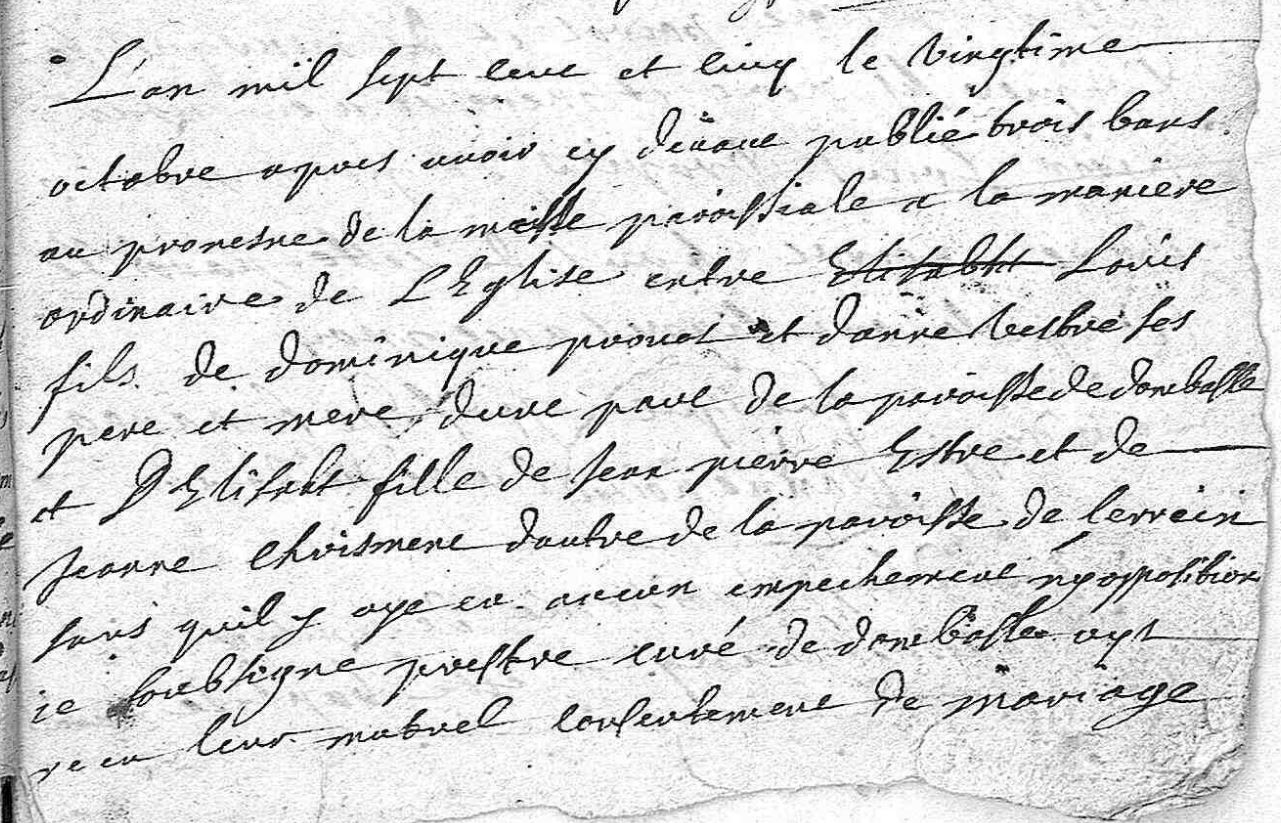 L'an mil sept cent et cinq le vingtime
octobre apres avoir cy devant publié trois bans
au pronesne de la messe paroissiale a la maniere
ordinaire de L'Eglise entre Elisabht Loüis
fils de dominique provot et d'anne vestre ses
pere et mere, d'une part de la paroisse de dombasle
et D'Elisabt fille de Jean pierre Estre et de
Jeanne Chrismene d'autre de la paroisse de
sans quil y aye eu aucun empechement ny opposition
ie soubsigne prestre curé de dombasle ayt
receu leur mutuel consentement de mariage